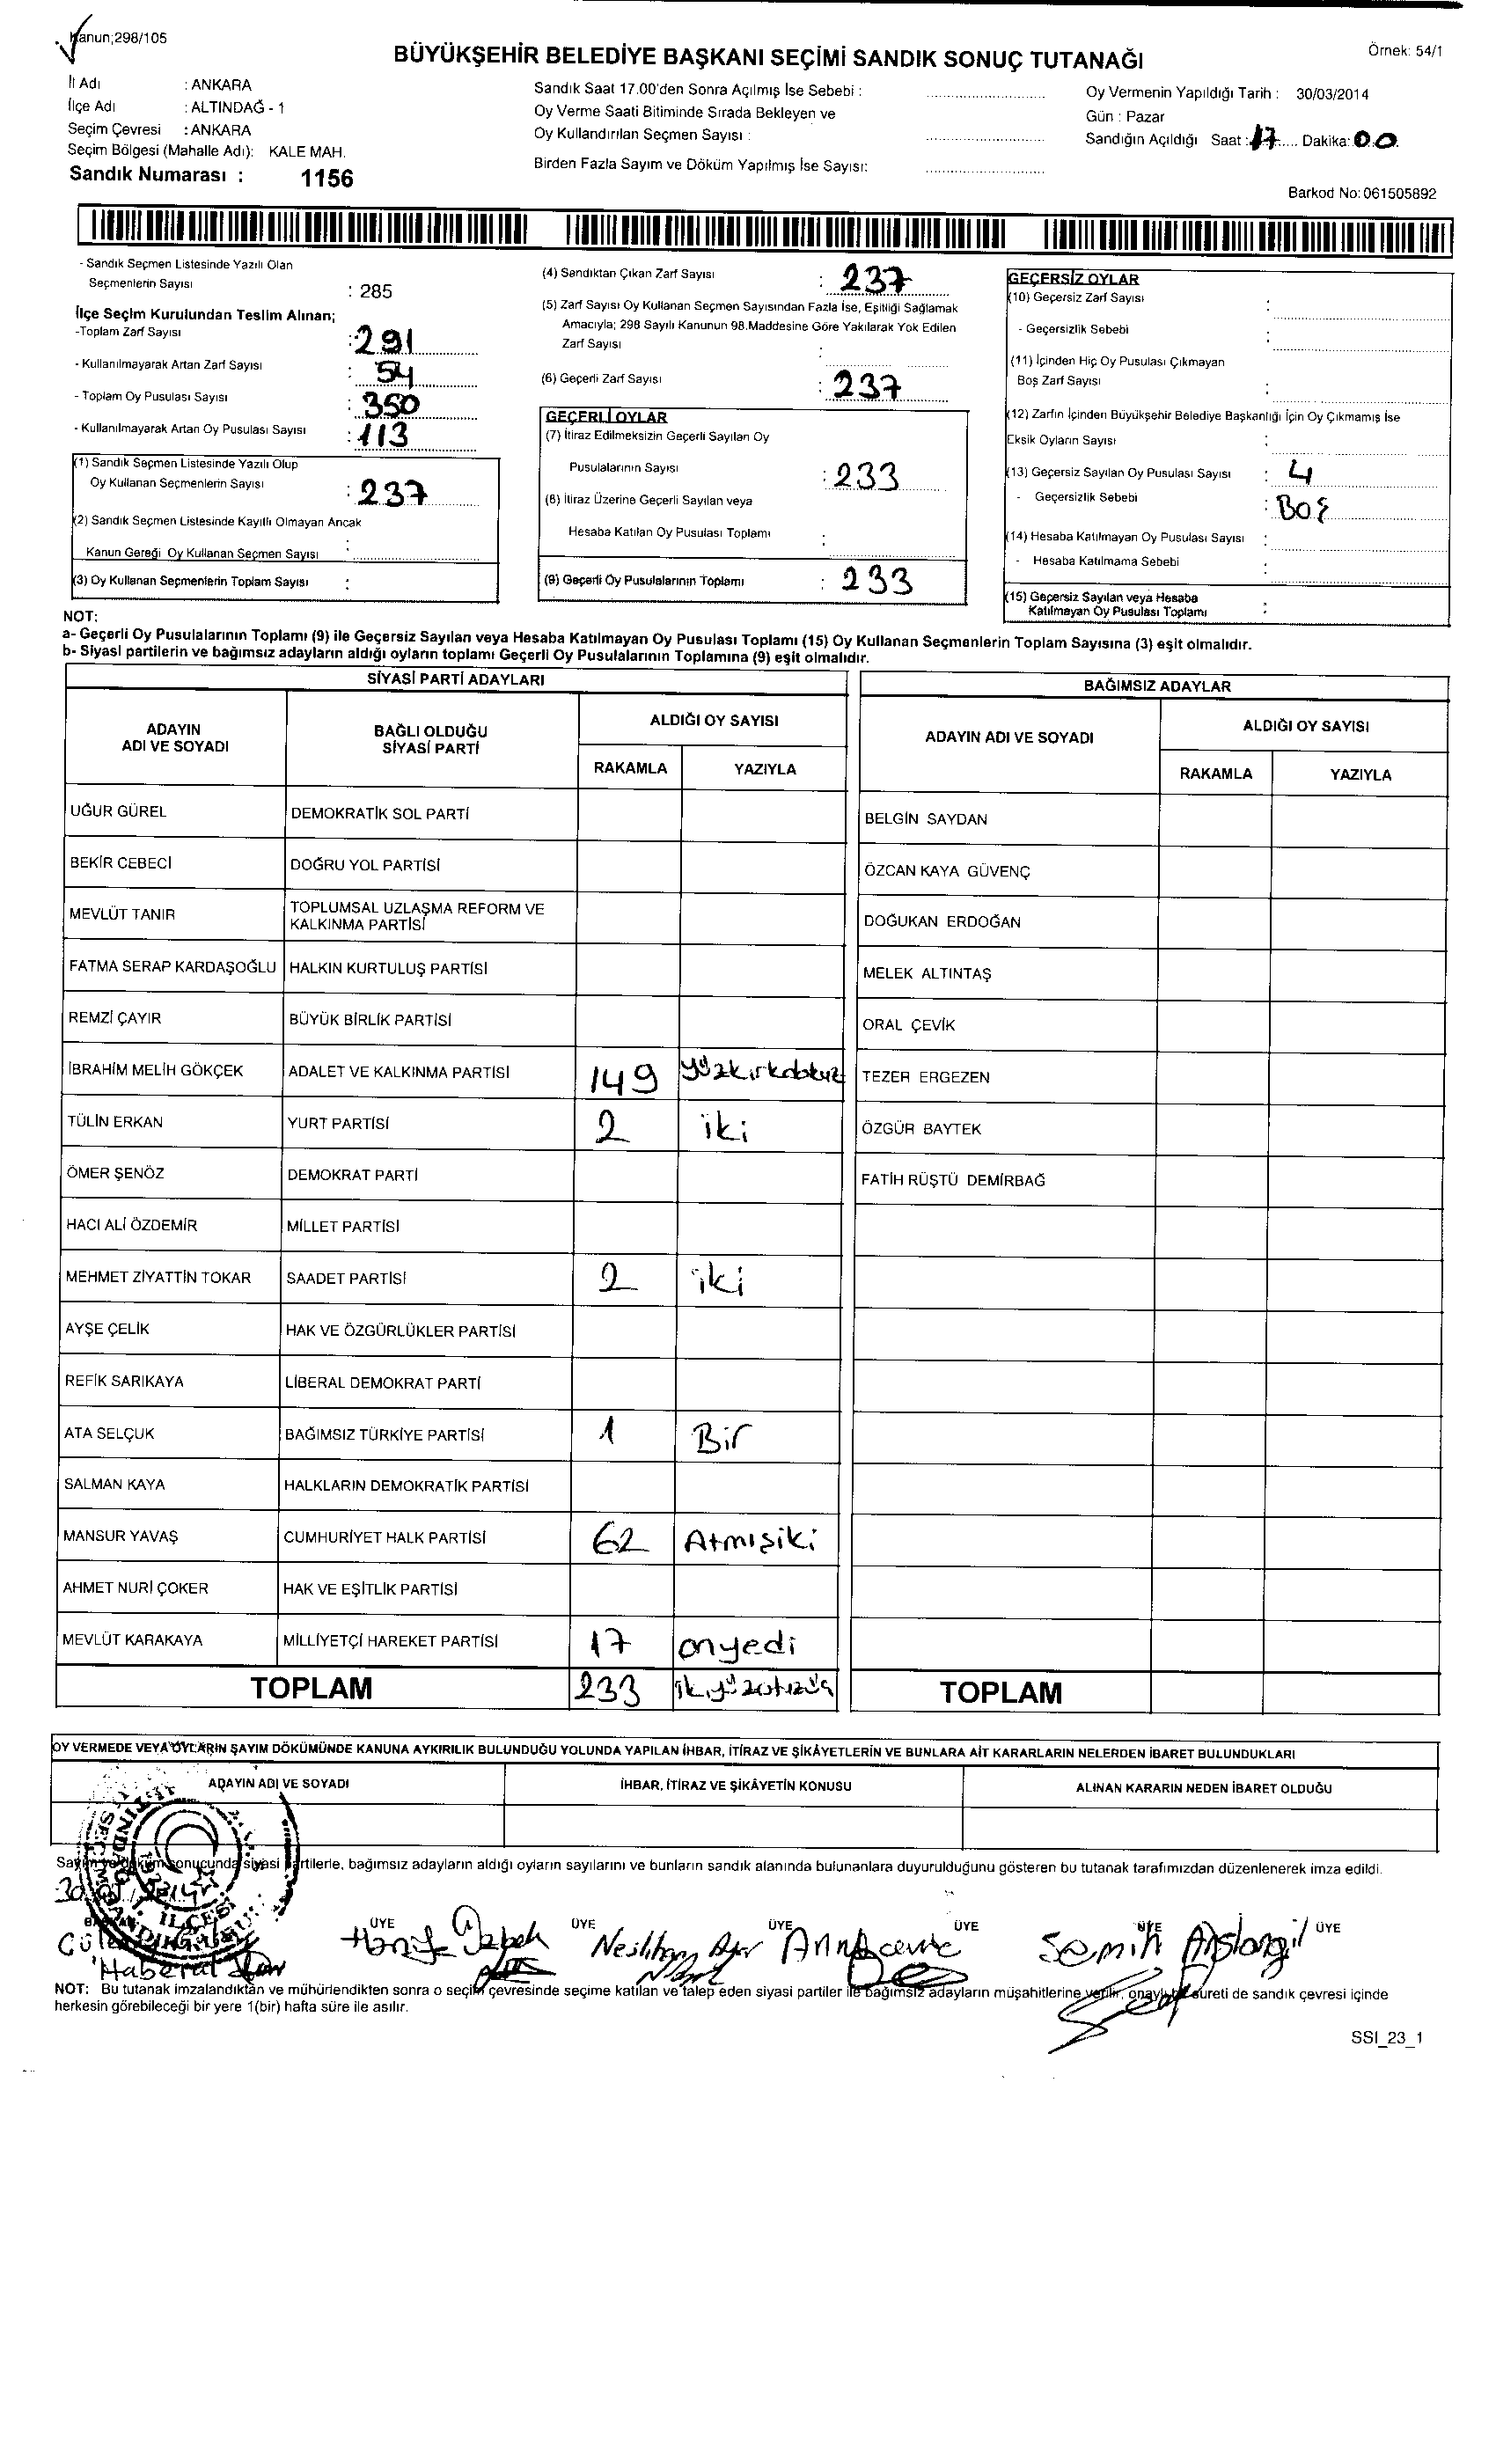 Kanun;298/105
BÜYÜKŞEHİR BELEDİYE BAŞKANI SEÇİMİ SANDIK SONUÇ TUTANAĞI
Örnek: 54/1
İl Adı : ANKARA
İlçe Adı : ALTINDAĞ - 1
Seçim Çevresi : ANKARA
Seçim Bölgesi (Mahalle Adı): KALE MAH.
Sandık Numarası : 1156
Sandık Saat 17.00'den Sonra Açılmış İse Sebebi :
Oy Verme Saati Bitiminde Sırada Bekleyen ve
Oy Kullandırılan Seçmen Sayısı :
Birden Fazla Sayım ve Döküm Yapılmış İse Sayısı:
Oy Vermenin Yapıldığı Tarih : 30/03/2014
Gün : Pazar
Sandığın Açıldığı Saat : 17 Dakika: 00
Barkod No: 061505892
- Sandık Seçmen Listesinde Yazılı Olan
Seçmenlerin Sayısı : 285
İlçe Seçim Kurulundan Teslim Alınan;
-Toplam Zarf Sayısı : 291
- Kullanılmayarak Artan Zarf Sayısı : 54
- Toplam Oy Pusulası Sayısı : 350
- Kullanılmayarak Artan Oy Pusulası Sayısı : 113
(1) Sandık Seçmen Listesinde Yazılı Olup
Oy Kullanan Seçmenlerin Sayısı : 237
(2) Sandık Seçmen Listesinde Kayıtlı Olmayan Ancak
Kanun Gereği Oy Kullanan Seçmen Sayısı :
(3) Oy Kullanan Seçmenlerin Toplam Sayısı :
(4) Sandıktan Çıkan Zarf Sayısı : 237
(5) Zarf Sayısı Oy Kullanan Seçmen Sayısından Fazla İse, Eşitliği Sağlamak
Amacıyla; 298 Sayılı Kanunun 98.Maddesine Göre Yakılarak Yok Edilen
Zarf Sayısı :
(6) Geçerli Zarf Sayısı : 237
GEÇERLİ OYLAR
(7) İtiraz Edilmeksizin Geçerli Sayılan Oy
Pusulalarının Sayısı : 233
(8) İtiraz Üzerine Geçerli Sayılan veya
Hesaba Katılan Oy Pusulası Toplamı :
(9) Geçerli Oy Pusulalarının Toplamı : 233
GEÇERSİZ OYLAR
(10) Geçersiz Zarf Sayısı :
- Geçersizlik Sebebi :
(11) İçinden Hiç Oy Pusulası Çıkmayan
Boş Zarf Sayısı :
(12) Zarfın İçinden Büyükşehir Belediye Başkanlığı İçin Oy Çıkmamış İse
Eksik Oyların Sayısı :
(13) Geçersiz Sayılan Oy Pusulası Sayısı : 4
- Geçersizlik Sebebi : Boş
(14) Hesaba Katılmayan Oy Pusulası Sayısı :
- Hesaba Katılmama Sebebi :
(15) Geçersiz Sayılan veya Hesaba
Katılmayan Oy Pusulası Toplamı :
NOT:
a- Geçerli Oy Pusulalarının Toplamı (9) ile Geçersiz Sayılan veya Hesaba Katılmayan Oy Pusulası Toplamı (15) Oy Kullanan Seçmenlerin Toplam Sayısına (3) eşit olmalıdır.
b- Siyasi partilerin ve bağımsız adayların aldığı oyların toplamı Geçerli Oy Pusulalarının Toplamına (9) eşit olmalıdır.
SİYASİ PARTİ ADAYLARI
ADAYIN ADI VE SOYADI BAĞLI OLDUĞU SİYASİ PARTİ ALDIĞI OY SAYISI
RAKAMLA YAZIYLA
UĞUR GÜREL DEMOKRATİK SOL PARTİ
BEKİR CEBECİ DOĞRU YOL PARTİSİ
MEVLÜT TANIR TOPLUMSAL UZLAŞMA REFORM VE KALKINMA PARTİSİ
FATMA SERAP KARDAŞOĞLU HALKIN KURTULUŞ PARTİSİ
REMZİ ÇAYIR BÜYÜK BİRLİK PARTİSİ
İBRAHİM MELİH GÖKÇEK ADALET VE KALKINMA PARTİSİ 149 yüzkırkdokuz
TÜLİN ERKAN YURT PARTİSİ 2 iki
ÖMER ŞENÖZ DEMOKRAT PARTİ
HACI ALİ ÖZDEMİR MİLLET PARTİSİ
MEHMET ZİYATTİN TOKAR SAADET PARTİSİ 2 iki
AYŞE ÇELİK HAK VE ÖZGÜRLÜKLER PARTİSİ
REFİK SARIKAYA LİBERAL DEMOKRAT PARTİ
ATA SELÇUK BAĞIMSIZ TÜRKİYE PARTİSİ 1 Bir
SALMAN KAYA HALKLARIN DEMOKRATİK PARTİSİ
MANSUR YAVAŞ CUMHURİYET HALK PARTİSİ 62 Atmışiki
AHMET NURİ ÇOKER HAK VE EŞİTLİK PARTİSİ
MEVLÜT KARAKAYA MİLLİYETÇİ HAREKET PARTİSİ 17 onyedi
TOPLAM 233 ikiyüzotuzüç
BAĞIMSIZ ADAYLAR
ADAYIN ADI VE SOYADI ALDIĞI OY SAYISI
RAKAMLA YAZIYLA
BELGİN SAYDAN
ÖZCAN KAYA GÜVENÇ
DOĞUKAN ERDOĞAN
MELEK ALTINTAŞ
ORAL ÇEVİK
TEZER ERGEZEN
ÖZGÜR BAYTEK
FATİH RÜŞTÜ DEMİRBAĞ
TOPLAM
OY VERMEDE VEYA OYLARIN SAYIM DÖKÜMÜNDE KANUNA AYKIRILIK BULUNDUĞU YOLUNDA YAPILAN İHBAR, İTİRAZ VE ŞİKÂYETLERİN VE BUNLARA AİT KARARLARIN NELERDEN İBARET BULUNDUKLARI
ADAYIN ADI VE SOYADI İHBAR, İTİRAZ VE ŞİKÂYETİN KONUSU ALINAN KARARIN NEDEN İBARET OLDUĞU
Sayım ve döküm sonucunda siyasi partilerle, bağımsız adayların aldığı oyların sayılarını ve bunların sandık alanında bulunanlara duyurulduğunu gösteren bu tutanak tarafımızdan düzenlenerek imza edildi.
BAŞKAN ÜYE ÜYE ÜYE ÜYE ÜYE ÜYE
Haberal Semih
NOT: Bu tutanak imzalandıktan ve mühürlendikten sonra o seçim çevresinde seçime katılan ve talep eden siyasi partiler ile bağımsız adayların müşahitlerine verilir, onaylı bir sureti de sandık çevresi içinde
herkesin görebileceği bir yere 1(bir) hafta süre ile asılır.
SSI_23_1